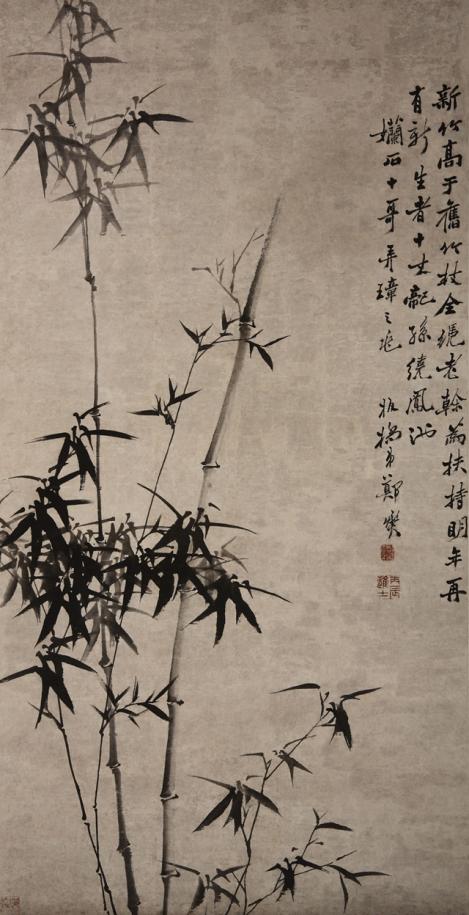 新竹高于舊竹枝全凭老榦為扶持明年再
有新生者十丈龍孫繞鳳池
石十哥弄璋之兆 板橋弟鄭燮
丙辰進士